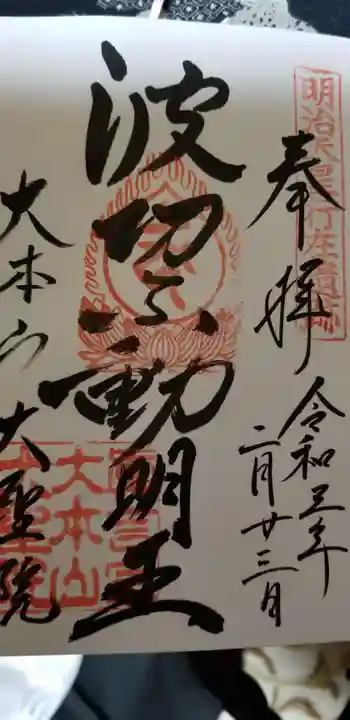 明治天皇行在所
奉拝
令和五年
二月廿三日
波切不動明王
大本山大聖院
大本山